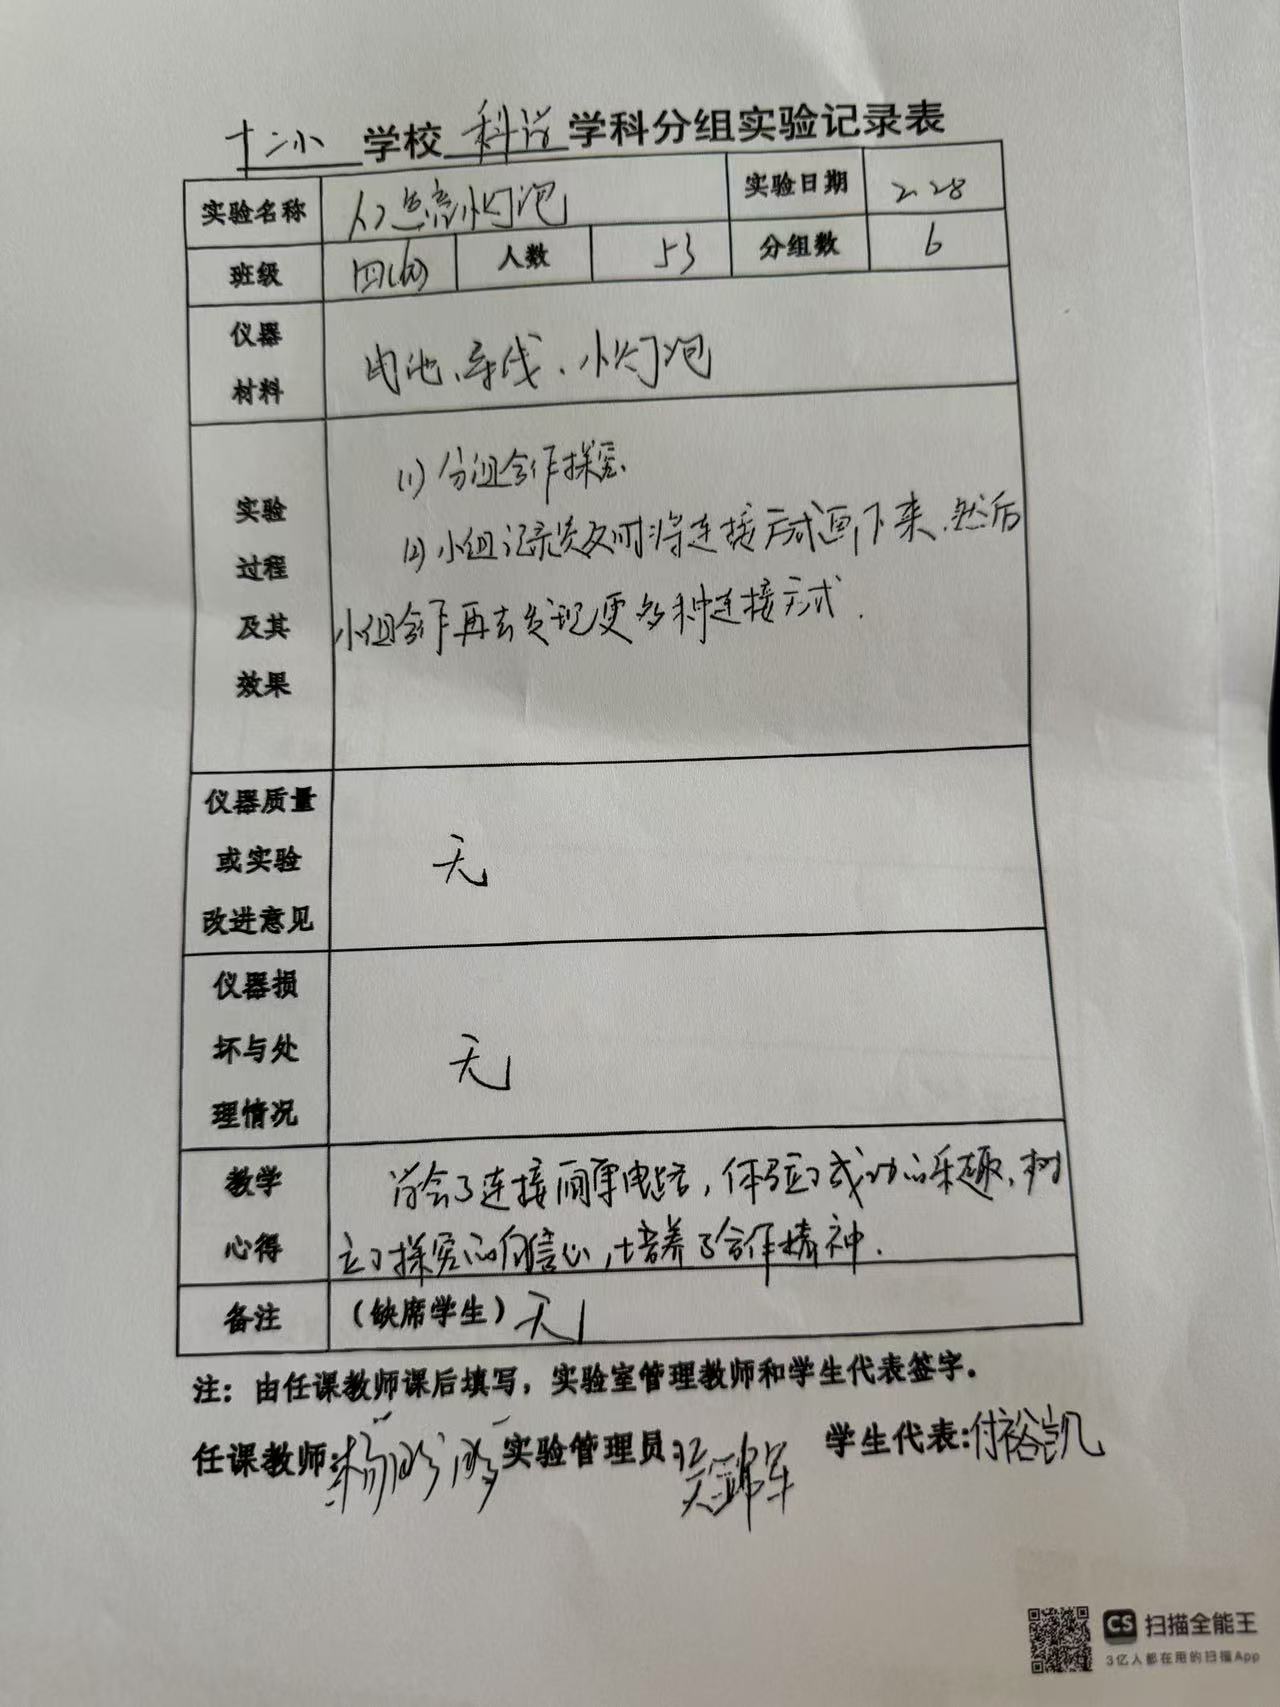 十二小 学校 科学 学科分组实验记录表
实验名称 点亮小灯泡 实验日期 2.28
班级 四(6) 人数 53 分组数 6
仪器
材料
电池、导线、小灯泡
实验
过程
及其
效果
(1) 分组合作探究.
(2) 小组记录员及时将连接方式画下来.然后
小组合作再去发现更多种连接方式.
仪器质量
或实验
改进意见
无
仪器损
坏与处
理情况
无
教学
心得
学会了连接简单电路,体验了成功的乐趣,树
立了探究的自信心,培养了合作精神.
备注 (缺席学生) 无
注：由任课教师课后填写，实验室管理教师和学生代表签字。
任课教师: 杨 实验管理员: 吴锦军 学生代表:付裕凯
CS 扫描全能王
3亿人都在用的扫描App